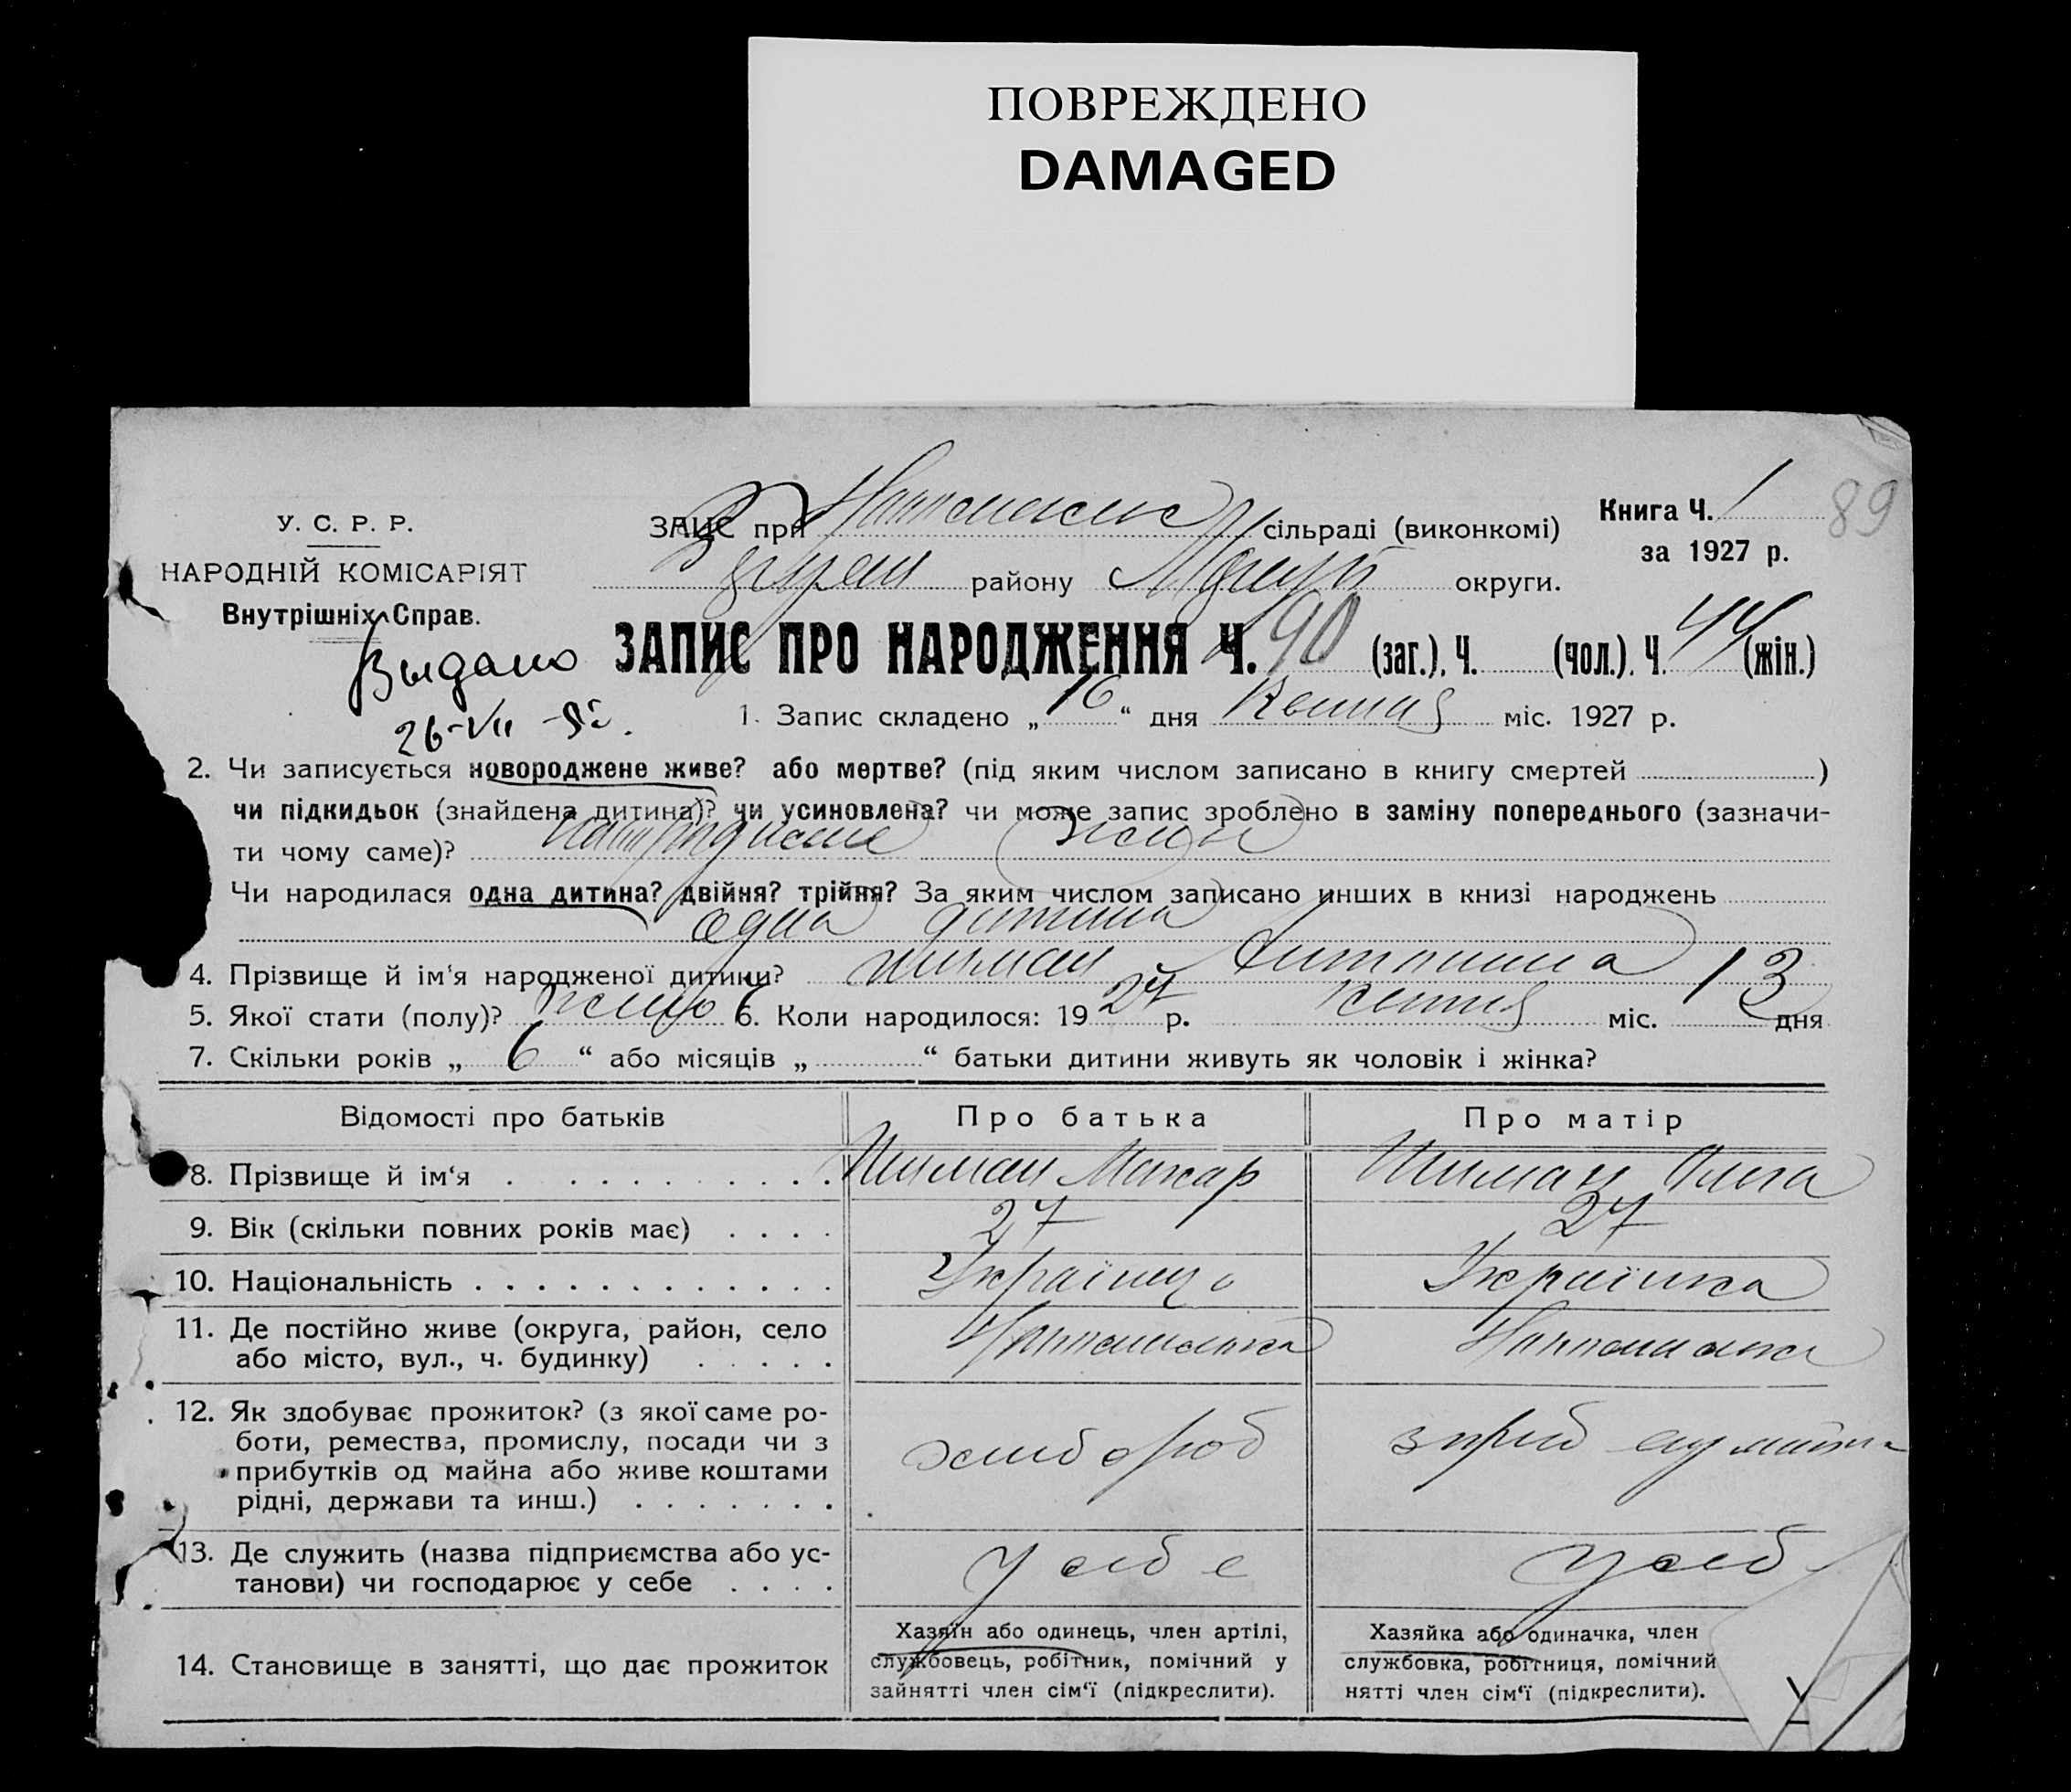 ПОВРЕЖДЕНО
DAMAGED
У. С. Р. Р.
НАРОДНІЙ КОМІСАРІЯТ
Внутрішніх Справ.
Выдано
26-VII
ЗАЦС при сільраді (виконкомі)
району округи.
Книга Ч. 1
89
за 1927 р.
ЗАПИС ПРО НАРОДЖЕННЯ Ч. 90 (заг.), Ч. (чол.), Ч. 44 (жін.)
1. Запис складено „ 16 “ дня Квітня міс. 1927 р.
2. Чи записується новороджене живе? або мертве? (під яким числом записано в книгу смертей )
чи підкидьок (знайдена дитина)? чи усиновлена? чи може запис зроблено в заміну попереднього (зазначи-
ти чому саме)?
Чи народилася одна дитина? двійня? трійня? За яким числом записано инших в книзі народжень
одна дитина
4. Прізвище й ім'я народженої дитини?
5. Якої стати (полу)? 6. Коли народилося: 19 27 р. квітня міс. 13 дня
7. Скільки років „ 6 “ або місяців „ “ батьки дитини живуть як чоловік і жінка?
Відомості про батьків Про батька Про матір
8. Прізвище й ім‘я Шиман Макар Шиман
9. Вік (скільки повних років має) 27 27
10. Національність Українец Українка
11. Де постійно живе (округа, район, село
або місто, вул., ч. будинку)
12. Як здобуває прожиток? (з якої саме ро-
боти, ремества, промислу, посади чи з
прибутків од майна або живе коштами
рідні, держави та инш.)
хлибороб
13. Де служить (назва підприємства або ус-
танови) чи господарює у себе
у себе у себ
14. Становище в занятті, що дає прожиток
Хазяїн або одинець, член артілі,
службовець, робітник, помічний у
зайнятті член сім‘ї (підкреслити).
Хазяйка або одиначка, член
службовка, робітниця, помічний
нятті член сім‘ї (підкреслити).